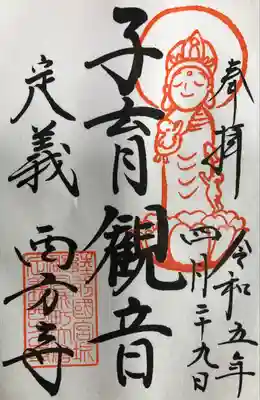 奉拝
令和五年
四月二十九日
子育観音
定義
西方寺